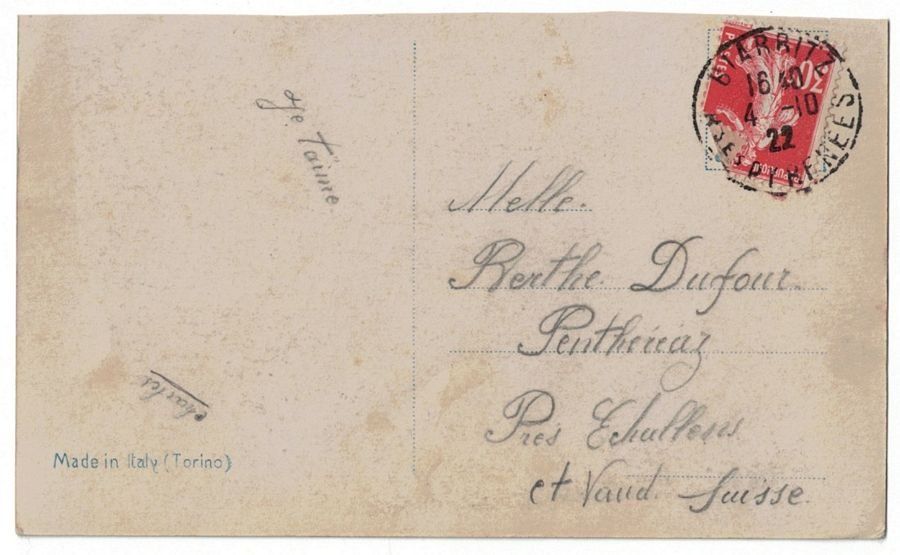 Je t'aime
charles
Made in Italy (Torino)
BIARRITZ
16 40
4 -10
22
BSES PYRENEES
30
Melle.
Berthe Dufour.
Penthéréaz
Près Echallens
ct Vaud. Suisse.